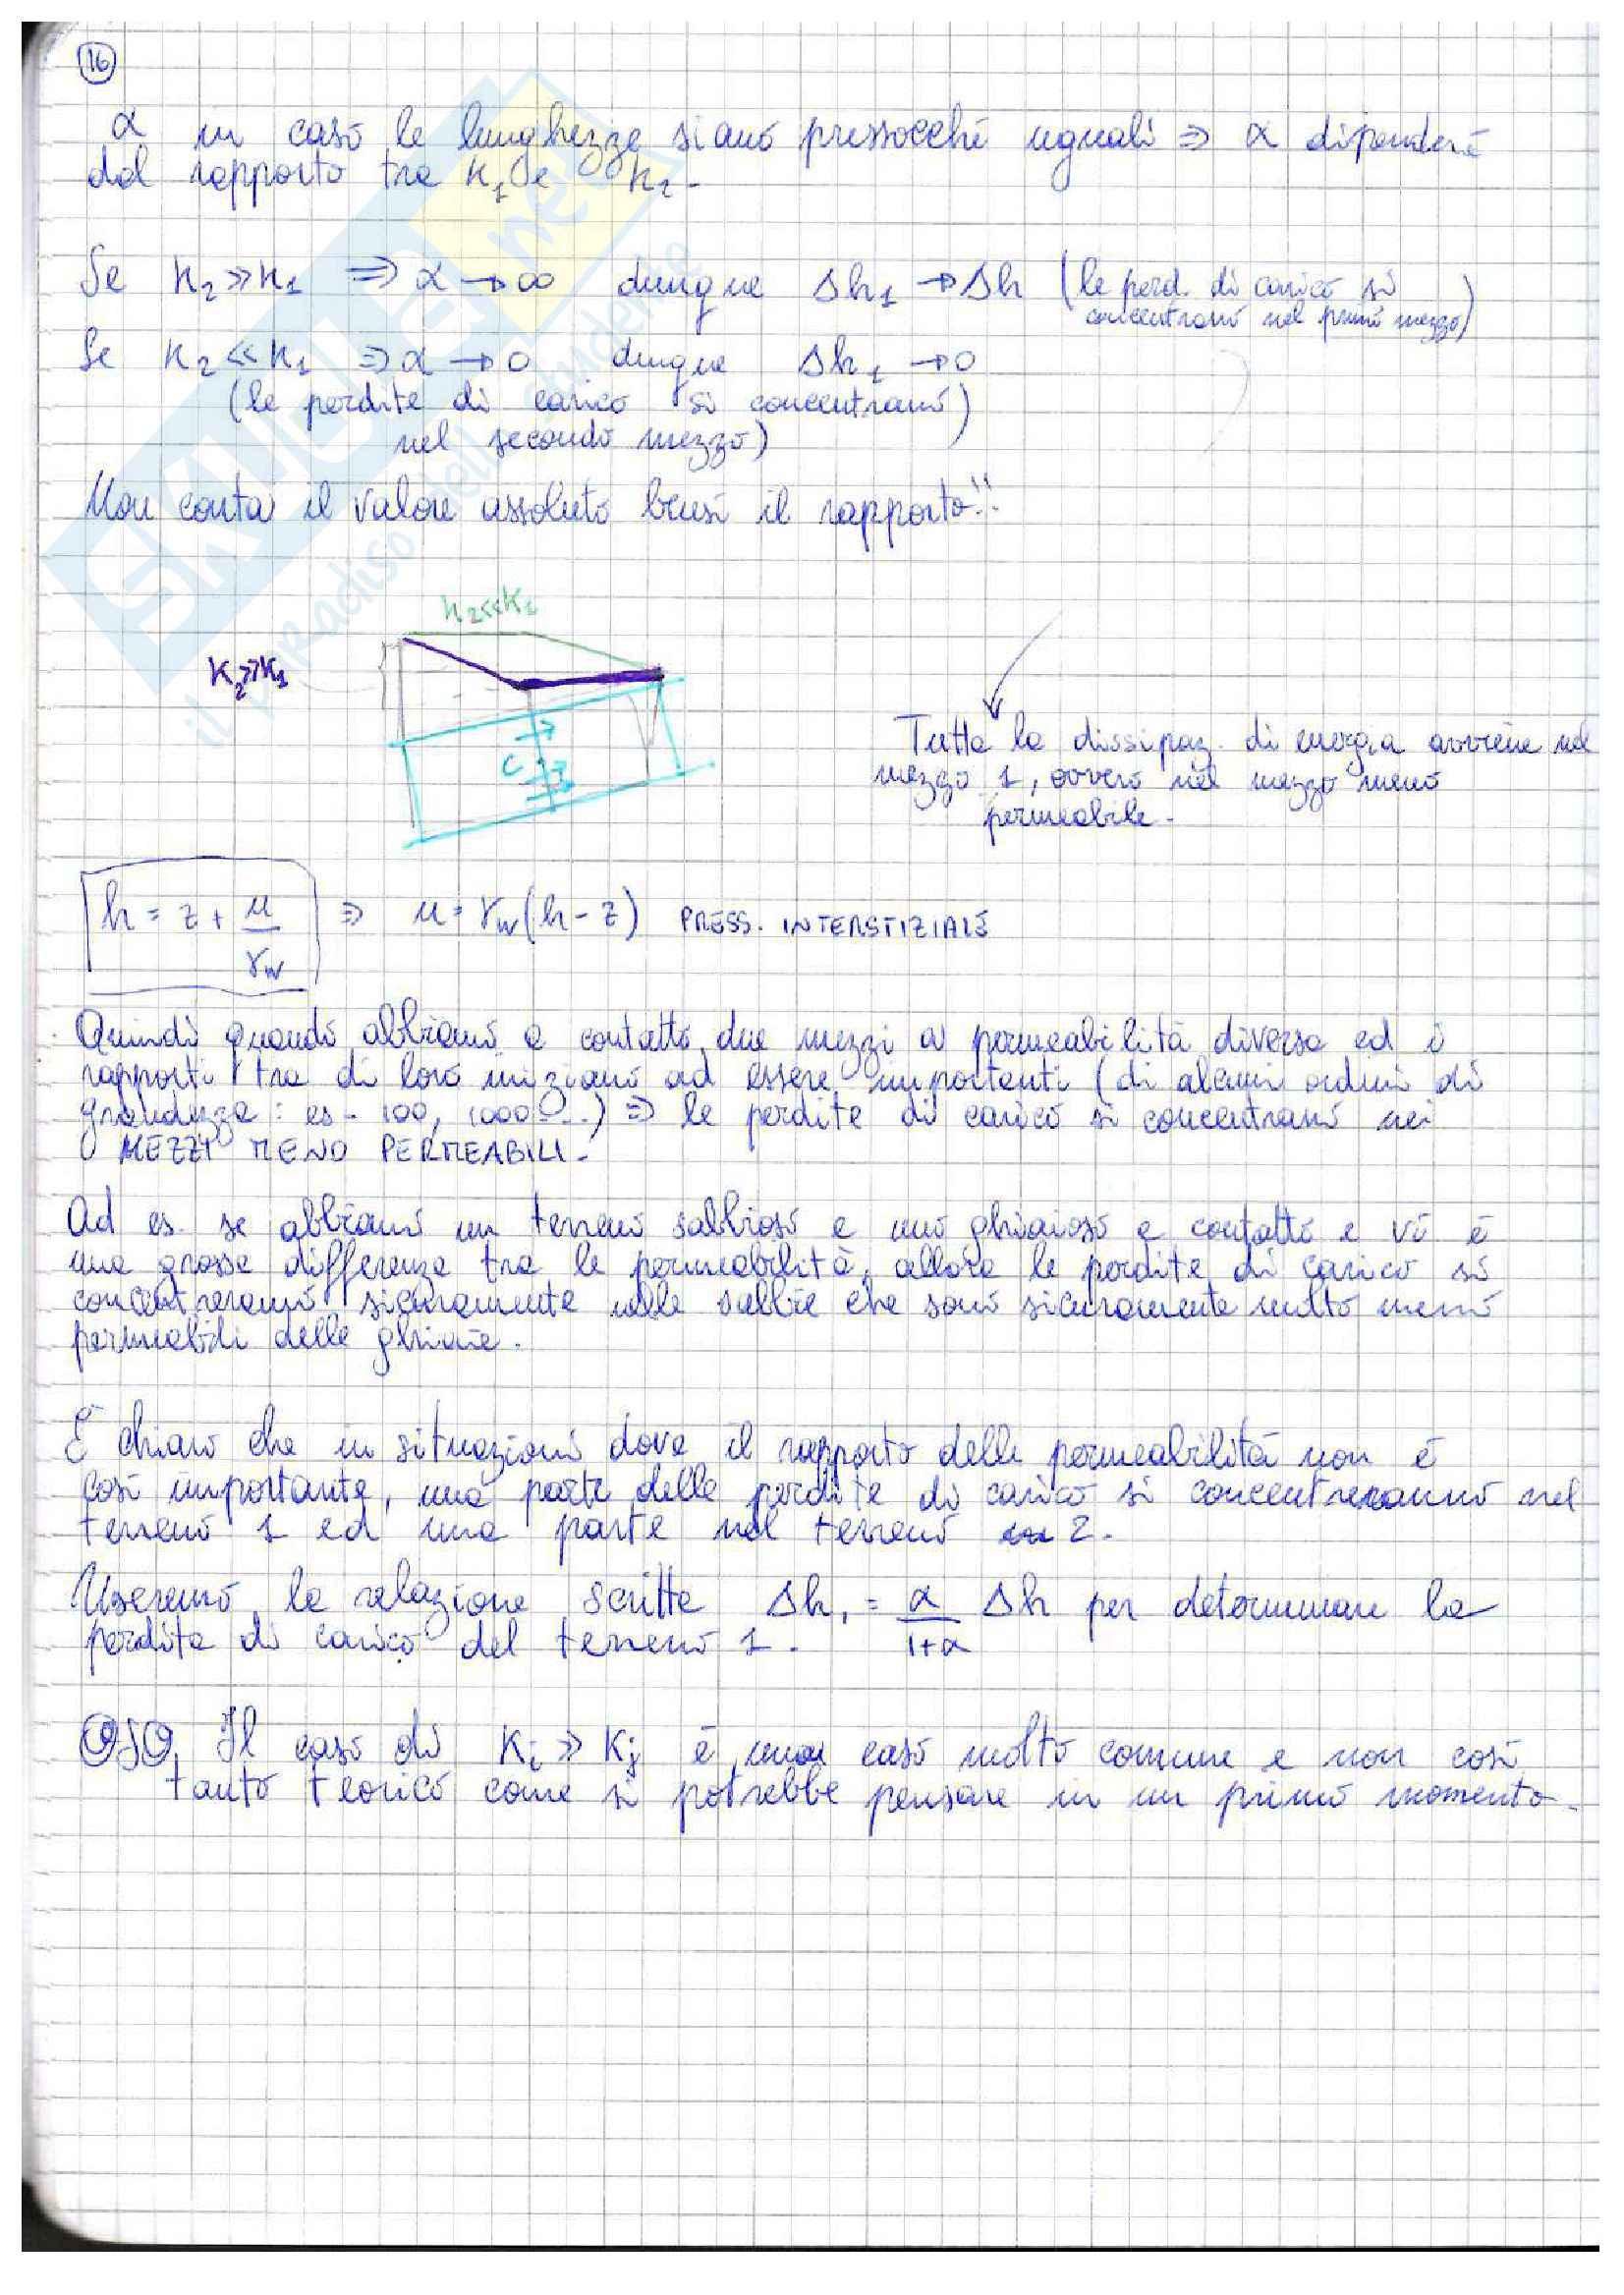 16
α in caso le lunghezze siano pressocché uguali ⇒ α dipenderà
dal rapporto tra K₁ e K₂.
Se K₂ ≫ K₁ ⇒ α → ∞ dunque Δh₁ → Δh (le perd. di carico si
concentrano nel primo mezzo)
Se K₂ ≪ K₁ ⇒ α → 0 dunque Δh₁ → 0
(le perdite di carico si concentrano
nel secondo mezzo)
Non conta il valore assoluto bensì il rapporto!!
K₂≪K₁
K₂≫K₁
C
Tutta la dissipaz. di energia avviene nel
mezzo 1, ovvero nel mezzo meno
permeabile.
h = z + u/γw ⇒ u = γw(h - z) PRESS. INTERSTIZIALE
Quindi quando abbiamo a contatto due mezzi a permeabilità diversa ed i
rapporti tra di loro iniziano ad essere importanti (di alcuni ordini di
grandezza: es. 100, 1000...) ⇒ le perdite di carico si concentrano nei
MEZZI MENO PERMEABILI.
Ad es. se abbiamo un terreno sabbioso e uno ghiaioso a contatto e vi è
una grossa differenza tra le permeabilità, allora le perdite di carico si
concentreranno sicuramente nelle sabbie che sono sicuramente molto meno
permeabili delle ghiaie.
È chiaro che in situazioni dove il rapporto delle permeabilità non è
così importante, una parte delle perdite di carico si concentreranno nel
terreno 1 ed una parte nel terreno 2.
Useremo la relazione scritta Δh₁ = α/(1+α) Δh per determinare la
perdita di carico del terreno 1.
OSS. Il caso di Ki ≫ Kj è un caso molto comune e non così
tanto teorico come si potrebbe pensare in un primo momento.
SKUOLA.net
il paradiso dello studente